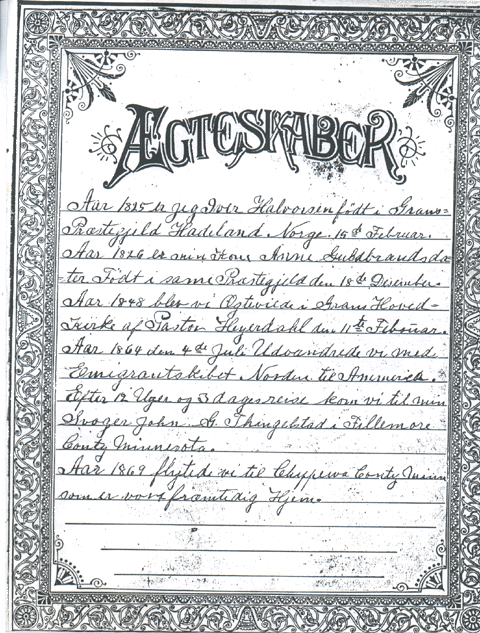 ÆGTESKABER
Aar 1825 er jeg Iver Halvorsen født i Grans=
Præstegjeld Hadeland Norge. 15de Februar.
Aar 1826 er min Kone Anne Guldbrandsda=
ter Født i same Præstegjeld den 18de Desember.
Aar 1848 blev vi Egteviede i Grans Hoved=
Kirke af Pastor Heyerdahl den 11te Februar.
Aar 1864 den 4de Juli Udvandrede vi med
Emigrantskibet Norden til Ammerica.
Efter 12 Uger og 3 dages reise kom vi til min
Svoger John. G. Thingelstad i Fillemore
Conty Minnesota.
Aar 1869 flytede vi til Chyppewa Conty Minn
som er vores fræmtidig Hjem.